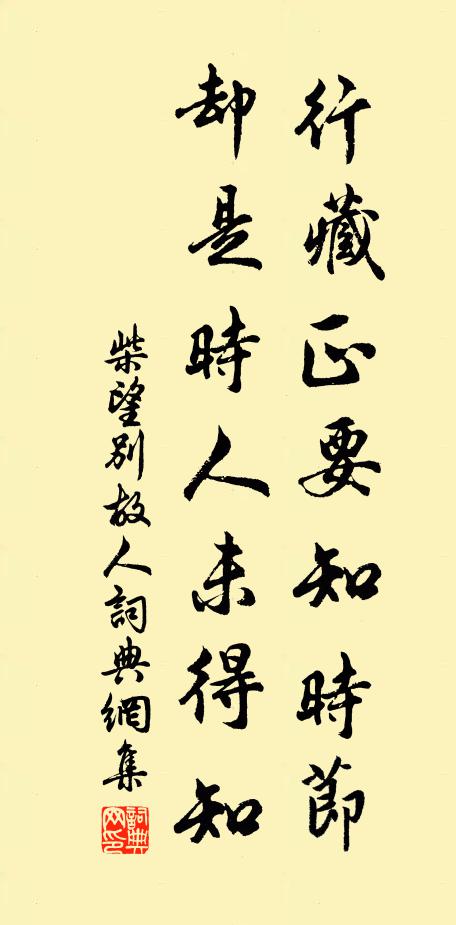 行藏正要知時節
却是時人未得知
柴望別故人詞典網集
詞典網印